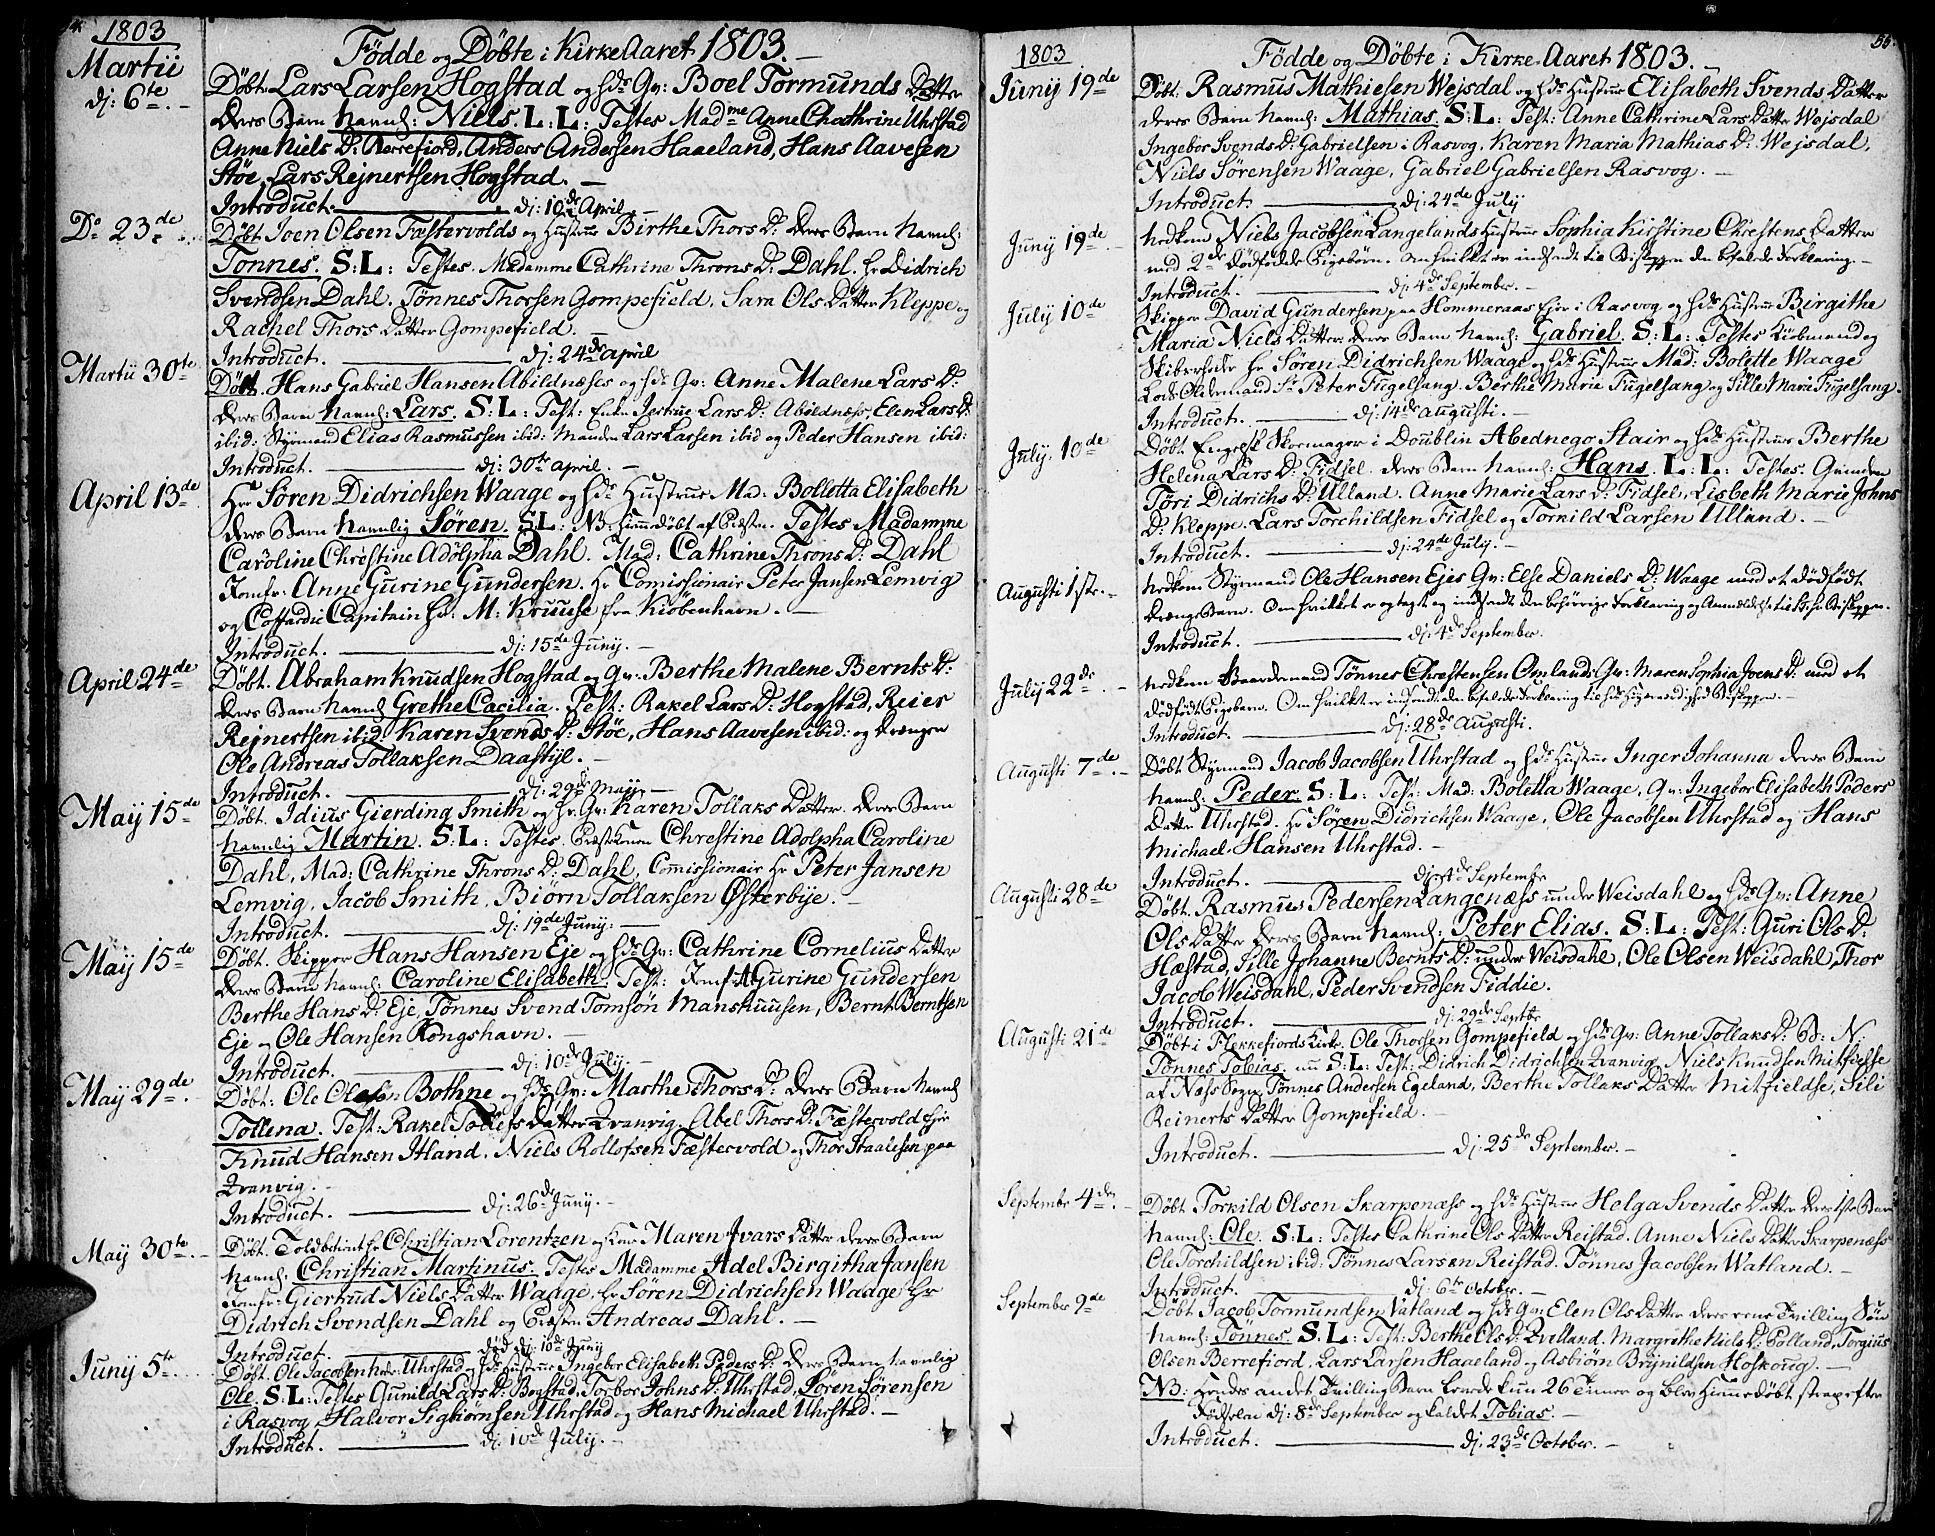 1803
Födde og Döbte i Kirke Aaret 1803.
Martii
dj: 6te
Döbt Lars Larsen Hogstad og hds Qv: Boel Tormunds Datter
deres Barn navnl: Niels. L: L: Testes Madme Anne Chathrine Uhrstad
Anne Niels D: Berrefiord, Anders Andersen Haaeland, Hans Aavesen
Stöe, Lars Rejnertsen Hogstad.
Introduct. dj: 10de April
Do 23de
Döbt Joen Olsen Fæstervolds og Hustrue Birthe Thors D: deres Barn navnl:
Tönnes. S: L: Testes. Madamme Cathrine Throns D: Dahl. Hr Didrich
Svendsen Dahl. Tönnes Thorsen Gompefield. Sara Ols Datter Kleppe og
Rachel Thors Datter Gompefield.
Introduct. dj: 24de April
Martii 30te
Döbt. Hans Gabriel Hansen Abildnæses og hds Qv: Anne Malene Lars D:
deres Barn navnl: Lars. S: L: Test: Enke Jertrue Lars D: Abildnæss, Elen Lars D:
ibid: Styrmand Elias Rasmussen ibid: Lars Larsen ibid og Peder Hansen ibid:
Introduct. dj: 30te April.
April 13de
Hr Sören Didrichsen Waage og hds Hustrue Mad: Bolletta Elisabeth
deres Barn navnlig Sören. S: L: NB: hiemmedöbt af Testes Madamme
Caroline Christine Adolphia Dahl. Mad: Cathrine Throns D: Dahl
Jomfr: Anne Gurine Gundersen. Hr Comissionair Peter Jansen Lemvig
og Coffardie Capitain Hr: M: Kruuse fra Kiöbenhavn.
Introduct. dj: 15de Juny.
April 24de
Döbt. Abraham Knudsen Hogstad og Qv: Berthe Malene Bernts D:
deres Barn navnl Grethe Cacilia. Test: Rakel Lars D: Hogstad, Reier
Rejnertsen ibid: Karen Svends D: Stöe, Hans Aavesen ibid: og drængen
Ole Andreas Tollaksen Daastyl.
Introduct. dj: 29de May.
May 15de
Döbt. Idius Gierding Smith og hs Qv: Karen Tollaks Datter. deres Barn
navnlig Martin. S: L: Testes. Chrestine Adolpha Caroline
Dahl, Mad: Cathrine Throns D: Dahl, Comissionair Hr Peter Jansen
Lemvig, Jacob Smith, Biörn Tollaksen Österbye.
Introduct. dj: 19de Juny.
May 15de
Döbt. Skipper Hans Hansen Eje og hds Qv: Cathrine Cornelius Datter
deres Barn navnl: Caroline Elisabeth. Test: Jomf: A Gurine Gundersen
Berthe Hans D: Eje, Tönnes Svend Tomsön Manskuusen, Bernt Berntsen
Eje og Ole Hansen Kongshavn.
Introduct. dj: 10de July.
May 29de
Döbt: Ole Olesen Bothne og hds Qv: Marthe Thors D: deres Barn navnl
Tollena. Test: Rakel Tollefs Datter Qvanvig, Abel Thors D: Fæstervold
Knud Hansen Itland, Niels Rollofsen Fæstervold og Thor Staalesen paa
Qvanvig.
Introduct. dj: 26de Juny.
May 30te
Döbt. Toldbetient Hr Christian Lorentzen og Kone Maren Ivars Datter deres Barn
navnl: Christian Martinus. Testes Madamme Adel Birgitha Jansen
Jomfr: Giertrud Niels Datter Waage Hr Sören Didrichsen Waage Hr
Didrich Svendsen Dahl og Andreas Dahl.
Introduct. död dj: 10de Juny
Juny 5te
Döbt. Ole Jacobsen Uhrstad og hds Hustrue Ingebor Elisabeth Peders D: deres Barn navnlig
Ole. S: L: Testes Gunild Lars D: Bogstad, Torbor Johns D: Uhrstad, Sören Sörensen
i Rasvog, Halvor Sigbiörnsen Uhrstad og Hans Michael Uhrstad.
Introduct. dj: 10de July.
1803
Födde og Döbte i Kirke-Aaret 1803.
Juny 19de
Döbt: Rasmus Mathiesen Wejsdal og hds Hustrue Elisabeth Svends Datter
deres Barn navnl: Mathias. S: L: Test: Anne Cathrine Lars Datter Wejsdal
Ingebor Svends D: Gabrielsen i Rasvog, Karen Maria Mathias D: Wejsdal,
Niels Sörensen Waage, Gabriel Gabrielsen Rasvog.
Introduct. dj: 24de July
Juny 19de
nedkom Niels Jacobsen Langelands Hustrue Sophia Kirstine Chrestens Datter
med 2de dödfödde Pigebörn. om hvilket er indsendt til Biskoppen den befalede Forklaring.
Introduct. dj: 4de September.
July 10de
Skipper David Gundersen paa Hommeraas Ejer i Rasvog og hds Hustrue Birgithe
Maria Niels Datter deres Barn navnl: Gabriel. S: L: Testes Kiöbmand og
Skibsreder Hr Sören Didrichsen Waage og hds Hustrue Mad: Bolette Waage
Lods Oldermand Sr Peter Fugelsang. Berthe Marie Fugelsang og Sille Marie Fugelsang.
Introduct. dj: 14de Augusti.
July 10de
Döbt Engelsk Skoemager i Doublin Abednego Stair og hds Hustrue Berthe
Helena Lars D: Fidsel. deres Barn navnl: Hans. L: L: Testes. Qvinden
Töri Didrichs D: Ulland. Anne Marie Lars D: Fidsel, Lisbeth Marie Johns
D: Kleppe. Lars Torchildsen Fidsel og Torkild Larsen Ulland.
Introduct. dj: 24de July.
Augusti 1ste
nedkom Styrmand Ole Hansen Ejes Qv: Else Daniels D: Waage med et dödfödt
drænge Barn. Om hvilket er optaget og indsendt den behörrige Forklaring og Anmeldelse til Biskoppen.
Introduct. dj: 4de September.
July 22de
nedkom Baadsmand Tönnes Chrestensen Omlands Qv: Maren Sophia Joens D: med et
dödfödt Pigebarn. Om hvilket er indsendt den befalede Forklaring til hds Höyærværdighed Biskoppen.
Introduct. dj: 28de Augusti.
Augusti 7de
Döbt Styrmand Jacob Jacobsen Uhrstad og hds Hustrue Inger Johanna deres Barn
navnl: Peder. S: L: Test: Mad: Boletta Waage, Qv: Ingebor Elisabeth Peders
Datter Uhrstad. Hr Sören Didrichsen Waage, Ole Jacobsen Uhrstad og Hans
Michael Hansen Uhrstad.
Introduct. dj: 4de Septembr
Augusti 28de
Döbt. Rasmus Pedersen Langenæss under Weisdahl og hds Qv: Anne
Ols Datter deres Barn navnl: Peter Elias. S: L: Test: Guri Ols D:
Hæstad, Sille Johanne Bernts D: under Weisdahl, Ole Olsen Weisdahl, Thor
Jacob Weisdahl, Peder Svendsen Fiddie.
Introduct. dj: 29de Septbr
Augusti 21de
Döbt i Flekkefiords Kirke. Ole Thorsen Gompefield og hds Qv: Anne Tollaks D: B: N:
Tönnes Tobias. S: L: Test: Didrich Didrichsen Qvanvig, Niels Knudsen Mitfielse
af Næss Sogn, Tönnes Andersen Egeland, Berthe Tollaks Datter Mitfieldse, Sili
Reinerts Datter Gompefield.
Introduct. dj: 25de September.
September 4de
Döbt Torkild Olsen Skarpenæss og hds Hustrue Helga Svends Datter deres 1ste Barn
navnl: Ole. S: L: Testes Cathrine Ols Datter Reistad. Anne Niels Datter Skarpenæss
Ole Torchildsen ibid: Tönnes Larsen Reistad. Tönnes Jacobsen Watland.
Introduct. dj: 6te October.
September 9de
Döbt Jacob Tormundsen Vatland og hds Qv: Elen Ols Datter deres eene Tvilling Sön
navnl: Tönnes. S: L: Test: Berthe Ols D: Qvilland, Margrethe Niels D: Dolland, Torgius
Olsen Berrefiord, Lars Larsen Haaeland og Asbiörn Brynildsen Hoskoug.
NB: Hendes andet Tvilling Barn levede kun 26 Timer og blev hiemmedöbt strax efter
Födselen dj: 8de September og kaldet Tobias.
Introduct. dj: 23de October.